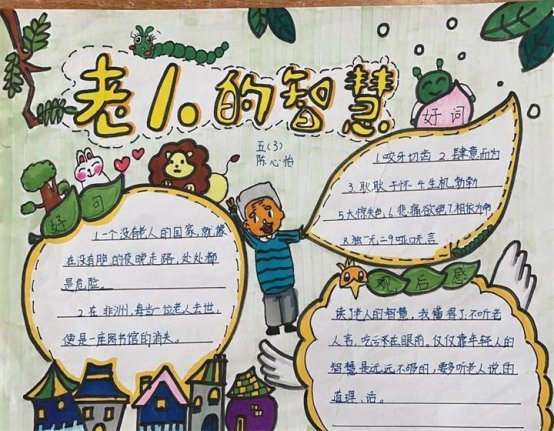 老人的智慧
五(3)
陈心怡
好词
1.咬牙切齿 2.肆意而为
3.耿耿于怀 4.生机勃勃
5.大惊失色 6.悲痛欲绝 7.相依为命
8.独一无二 9.哑口无言
好句
1.一个没有老人的国家,就像
在没有月亮的夜晚走路,处处都
是危险。
2.在非洲,每当一位老人去世,
便是一座图书馆的消失。
观后感
读了老人的智慧,我懂得了不听老
人言,吃亏在眼前。仅仅靠年轻人的
智慧是远远不够的,要多听老人说的
道理、话。